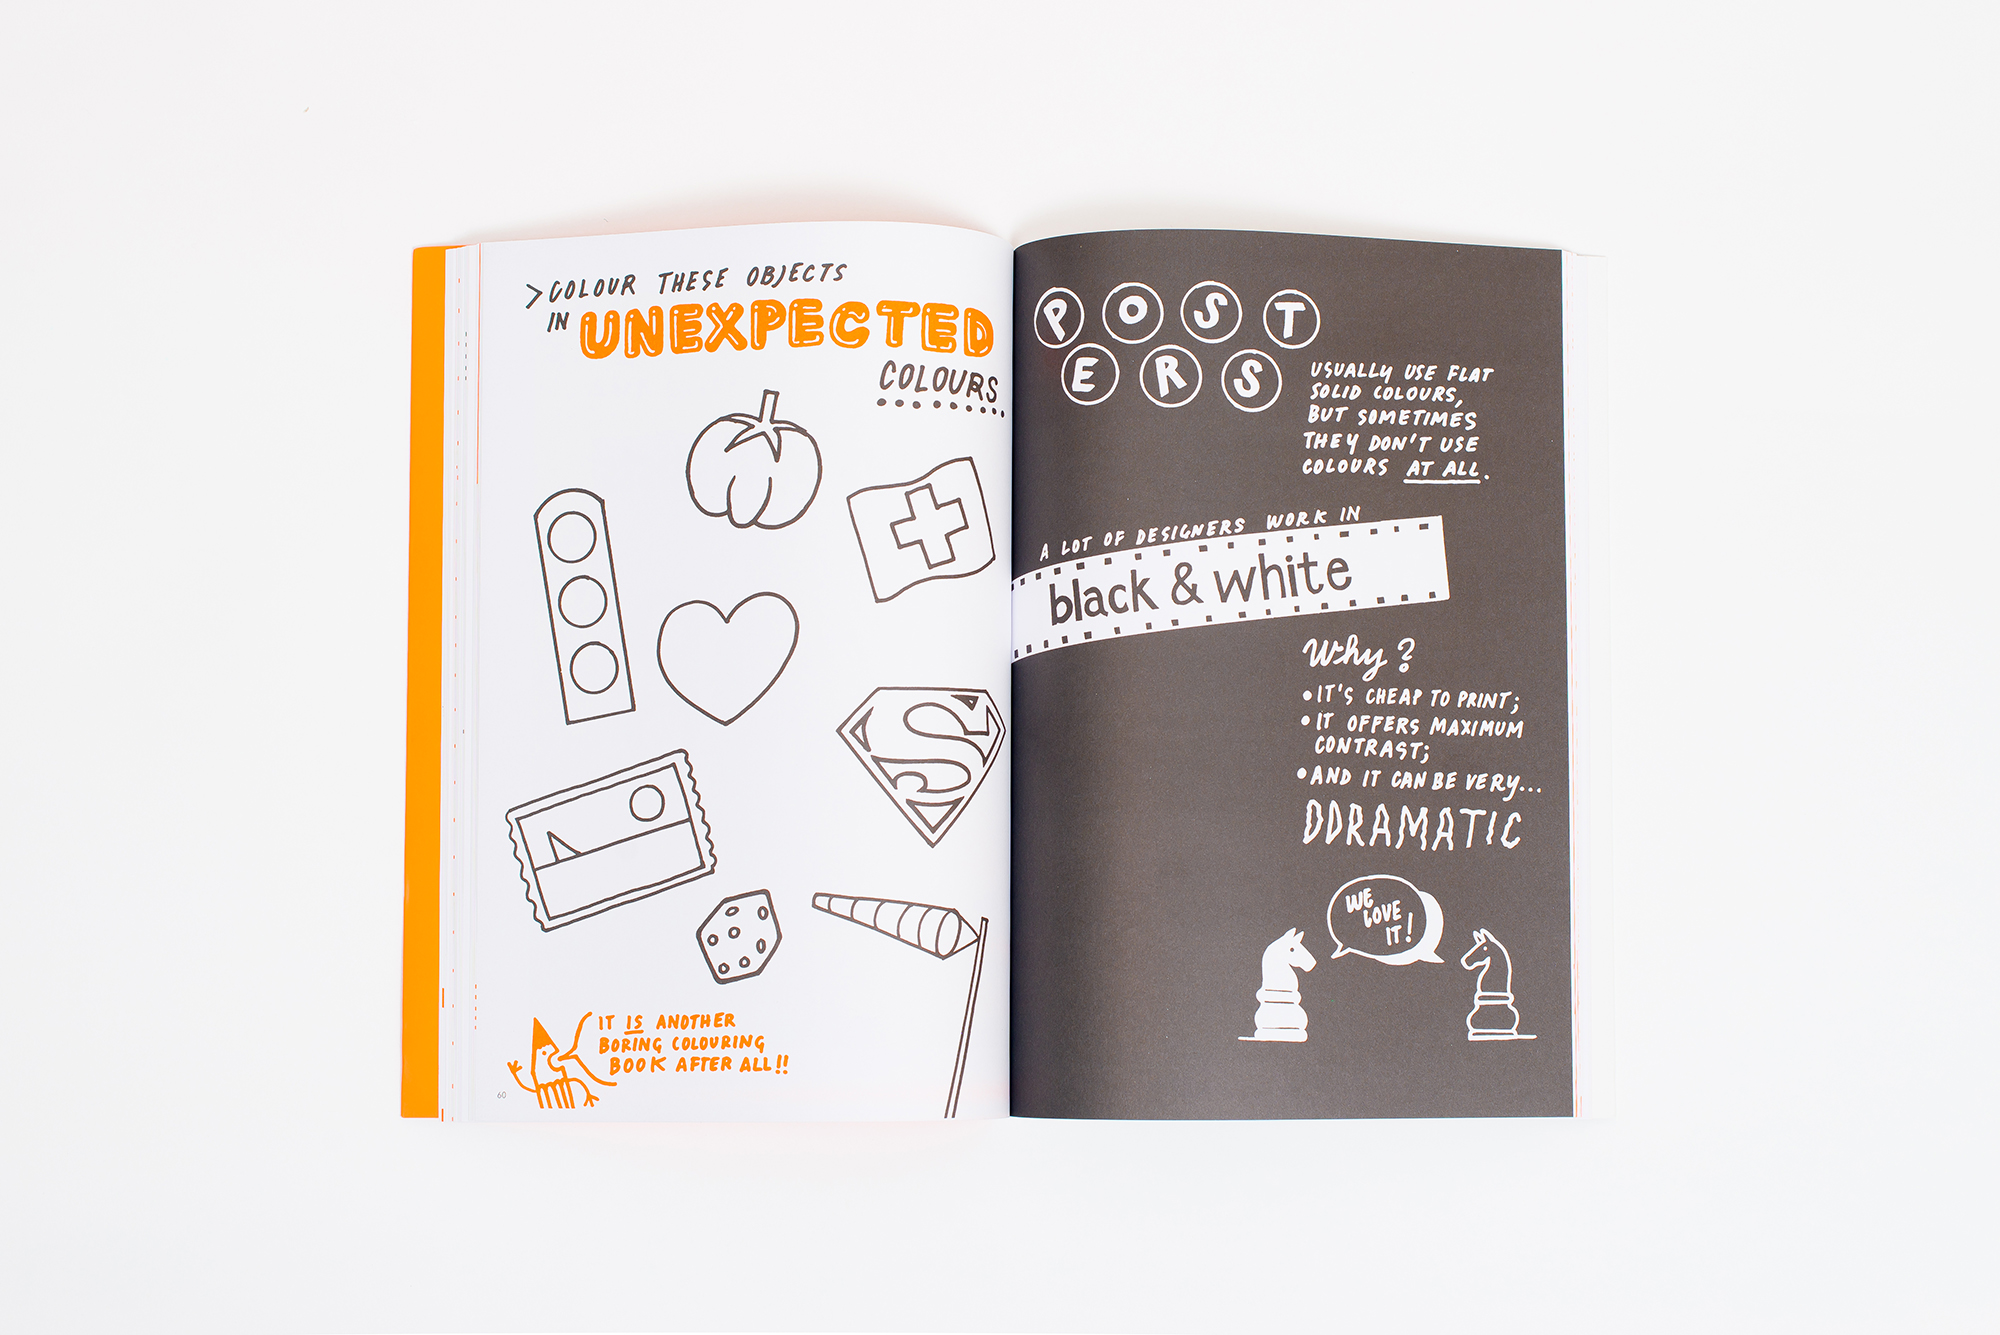 >COLOUR THESE OBJECTS
IN UNEXPECTED
COLOURS
S
IT IS ANOTHER
BORING COLOURING
BOOK AFTER ALL!!
60
POST
ERS
USUALLY USE FLAT
SOLID COLOURS,
BUT SOMETIMES
THEY DON'T USE
COLOURS AT ALL.
A LOT OF DESIGNERS WORK IN
black & white
Why?
• IT'S CHEAP TO PRINT;
• IT OFFERS MAXIMUM
CONTRAST;
• AND IT CAN BE VERY...
DDRAMATIC
WE
LOVE
IT!